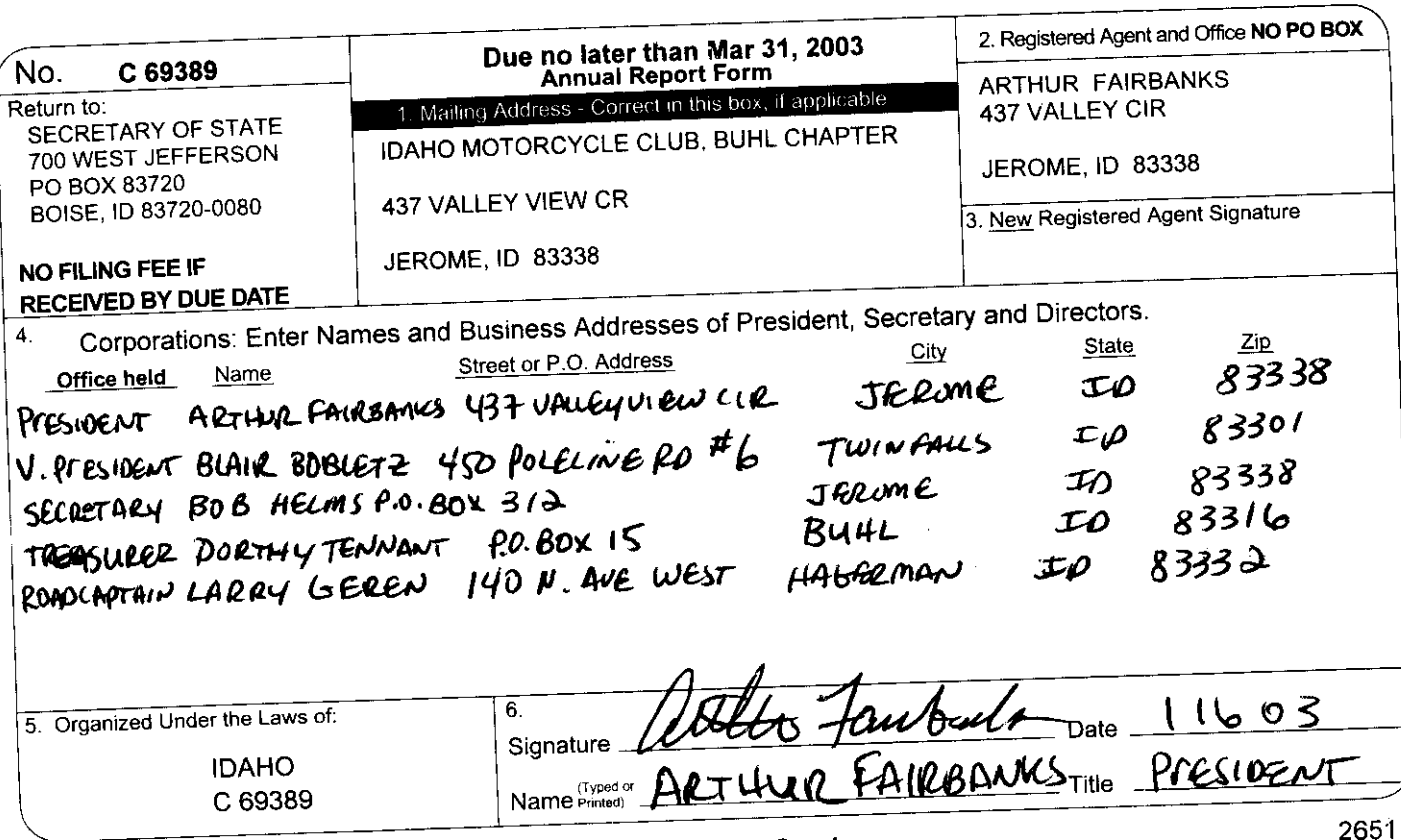 No. C 69389
Return to:
SECRETARY OF STATE
700 WEST JEFFERSON
PO BOX 83720
BOISE, ID 83720-0080
NO FILING FEE IF
RECEIVED BY DUE DATE
Due no later than Mar 31, 2003
Annual Report Form
1. Mailing Address - Correct in this box, if applicable
IDAHO MOTORCYCLE CLUB, BUHL CHAPTER
437 VALLEY VIEW CR
JEROME, ID 83338
2. Registered Agent and Office NO PO BOX
ARTHUR FAIRBANKS
437 VALLEY CIR
JEROME, ID 83338
3. New Registered Agent Signature
4. Corporations: Enter Names and Business Addresses of President, Secretary and Directors.
Office held Name Street or P.O. Address City State Zip
PRESIDENT ARTHUR FAIRBANKS 437 VALLEYVIEW CIR JEROME ID 83338
V. PRESIDENT BLAIR BOBLETZ 450 POLELINE RD #6 TWIN FALLS ID 83301
SECRETARY BOB HELMS P.O. BOX 312 JEROME ID 83338
TREASURER DORTHY TENNANT P.O. BOX 15 BUHL ID 83316
ROADCAPTAIN LARRY GEREN 140 N. AVE WEST HAGERMAN ID 83332
5. Organized Under the Laws of:
IDAHO
C 69389
6.
Signature Arthur Fairbanks Date 11603
Name (Typed or Printed) ARTHUR FAIRBANKS Title PRESIDENT
2651